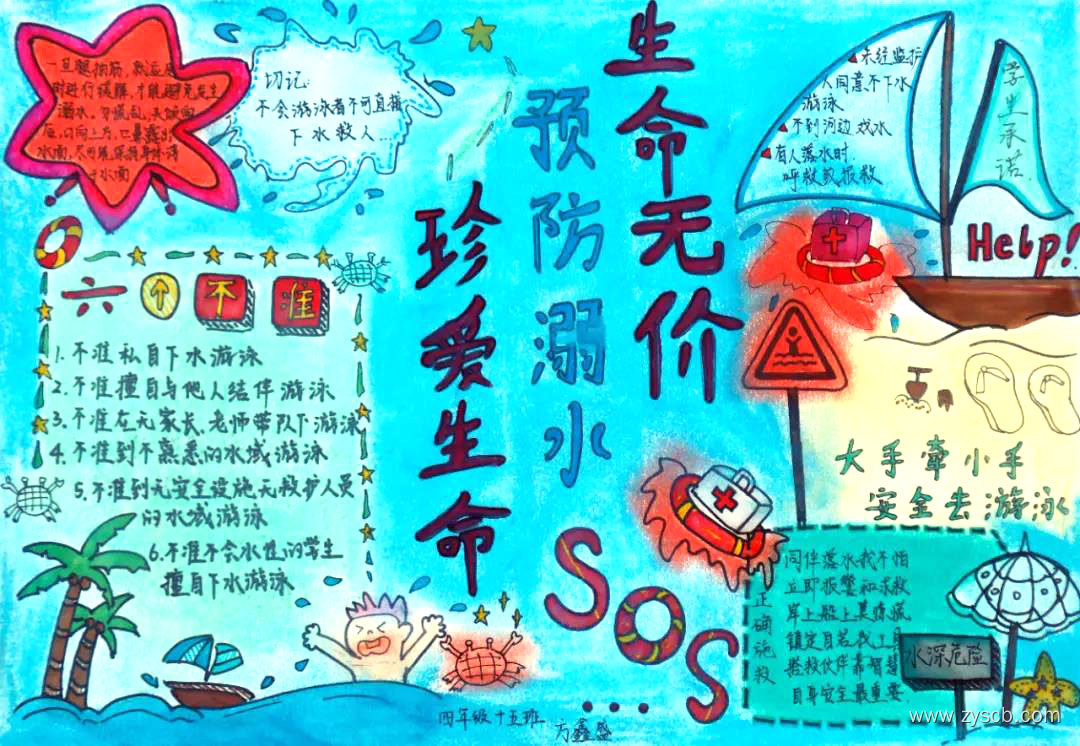 生命无价
预防溺水
珍爱生命
一旦腿抽筋，就应及
时进行缓解，才能避免发生
溺水，勿慌乱，头饭向
后，口向上方，口鼻露出
水面，
切记：
不会游泳者不可直接
下水救人…
未经监护
人同意不下水
游泳
不到河边戏水
有人落水时.
呼救或报救
学生承诺.
Help!
六不准
1.不准私自下水游泳
2.不准擅自与他人结伴游泳
3.不准在无家长、老师带队下游泳
4.不准到不熟悉的水域游泳
5.不准到无安全设施无救护人员
的水域游泳
6.不准不会水性的学生
擅自下水游泳
大手牵小手
安全去游泳
SOS...
正确施救
同伴落水我不怕
立即报警和求救
岸上船上莫惊慌
镇定自若找工具
抢救伙伴靠智慧
自身安全最重要
水深危险
四年级十五班
方鑫盛
www.zyscb.com